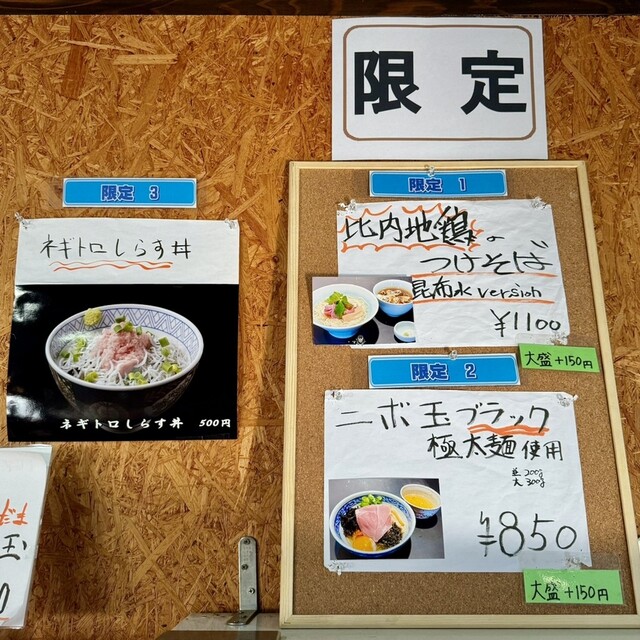 限定
限定 1
比内地鶏の
つけそば
昆布水 version
¥1100
大盛 +150円
限定 2
ニボ玉ブラック
極太麺使用
並 200g
大 300g
¥850
大盛 +150円
限定 3
ネギトロしらす丼
ネギトロしらす丼 500円
玉